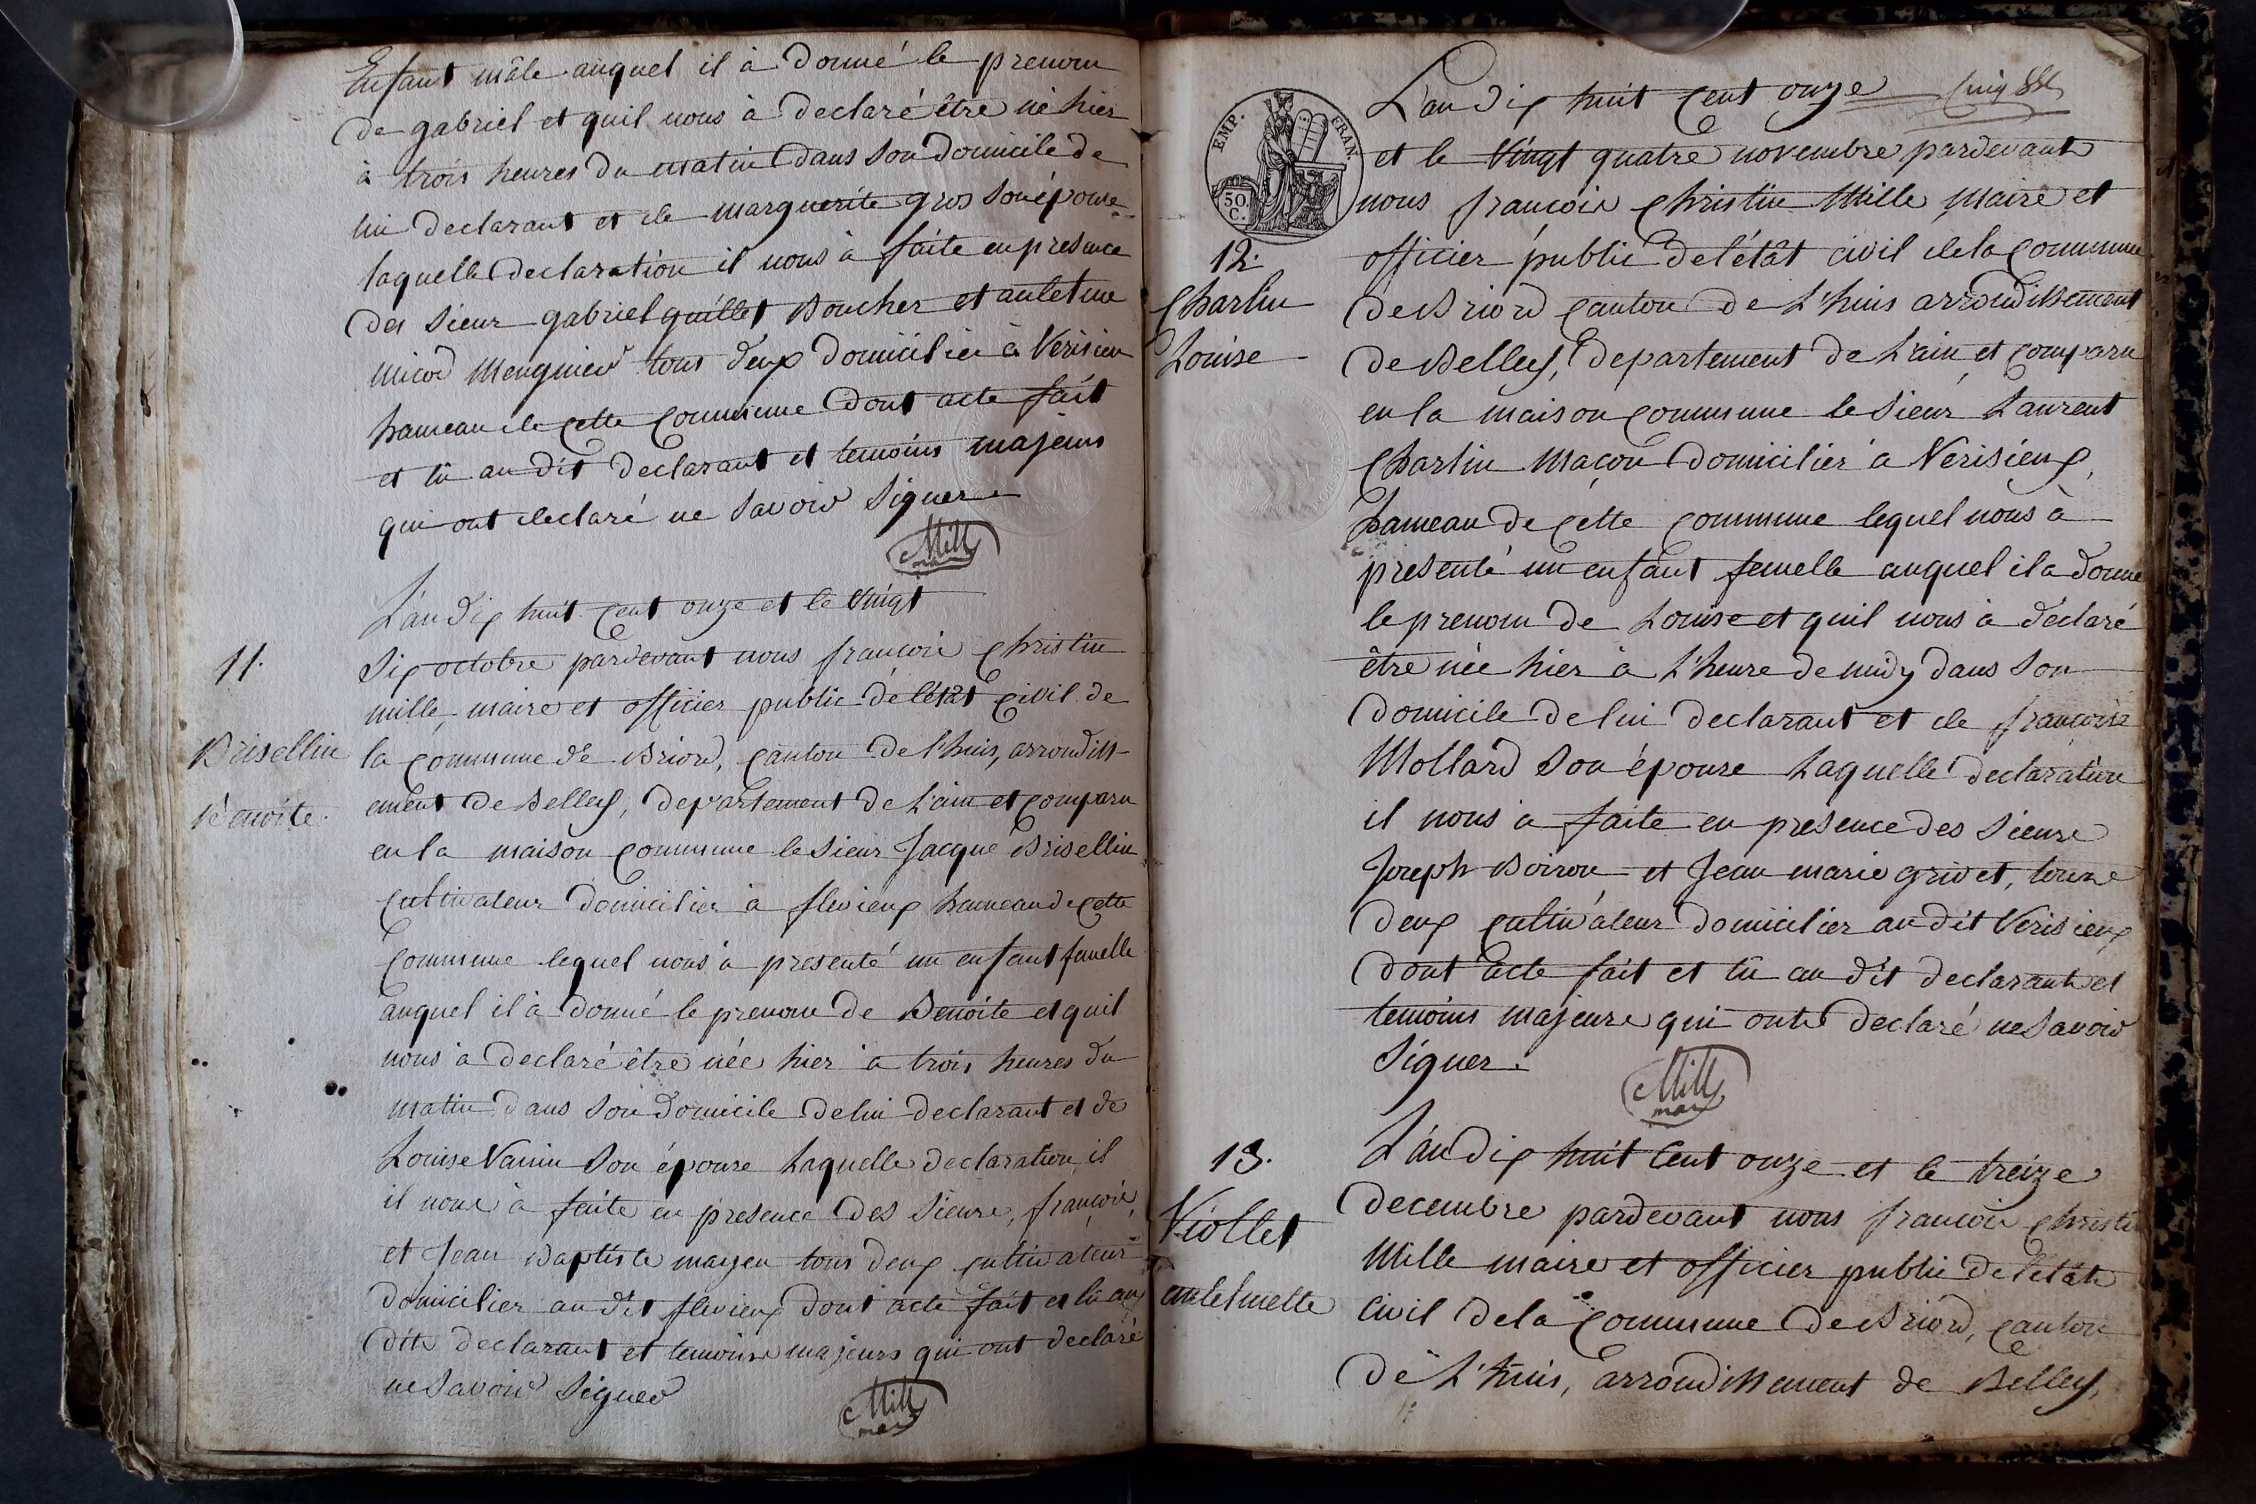 Enfant mâle auquel il à Donné le prenom
de gabriel et quil nous à declaré être né hier
à trois heures du matin Dans Son Domicile de
lui declarant et de marguerite gros Son épouse
laquelle Declaration il nous à faite en presence
des Sieur gabriel quillet Boucher et antelme
micod Meugnier tous deux Domicilier à Verisieu
hameau de Cette Commune Dont acte fait
et lû au dit Declarant et temoins majeurs
qui ont declaré ne Savoir Signer.
Mille
maire
11.
Brisellin
Benoite.
L'an Dix huit Cent onze et le Vingt
Six octobre pardevant nous françois Christin
mille, maire et officier public de l'état Civil de
la Commune de Briord, Canton de l'huis, arrondiss-
ement de Belley, departement de L'ain et Comparu
en la maison Commune le Sieur Jacque Brisellin
Cultivateur Domicilier à flevieux hameau de Cette
Commune lequel nous à presenté un enfant femelle
auquel il à Donné le prenom de Benoite et quil
nous à Declaré être née hier à trois heures du
matin Dans Son Domicile De lui Declarant et de
Louise Vanin Son épouse Laquelle declaration, il
il nous à faite en presence Des Sieurs, françois,
et Jean Baptiste mayen tous deux Cultivateur
Domicilier au dit flevieux Dont acte fait et lû au
Dit declarant et temoins majeurs qui ont declaré
ne Savoir Signer
Mille
maire
L'an Dix huit Cent onze
EMP. FRAN.
50.
C.
et le Vingt quatre novembre pardevant
nous françois Christin Mille Maire et
officier public De l'état civil de la Commune
de Briord Canton De L'huis arrondissement
De Belley, Departement de L'ain et Comparu
12.
Charlin
Louise
en la maison Commune le Sieur Laurent
Charlin Maçon Domicilier à Verisieux,
hameau de Cette Commune lequel nous à
presenté un enfant femelle auquel il a Donné
le prenom De Louise et quil nous à déclaré
être née hier à L'heure de midy dans Son
Domicile De lui Declarant et de francoise
Mollard Son épouse Laquelle declaration
il nous à faite en presence des Sieurs
Joseph Boiron et Jean marie grivet, tous
deux Cultivateur Domicilier au dit Verisieux
Dont acte fait et lû au Dit declarant et
temoins majeurs qui ont declaré ne Savoir
Signer.
Mille
maire
13.
Viollet
antelmette
L'an Dix huit Cent onze et le treize
Decembre pardevant nous francois Christin
Mille maire et officier public De l'état
Civil De la Commune De Briord, Canton
De L'huis, arrondissement de Belley,